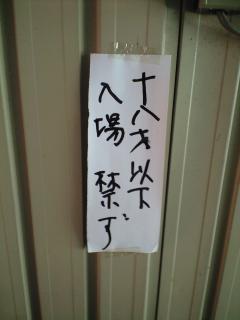 十八才以下
入場 禁ず